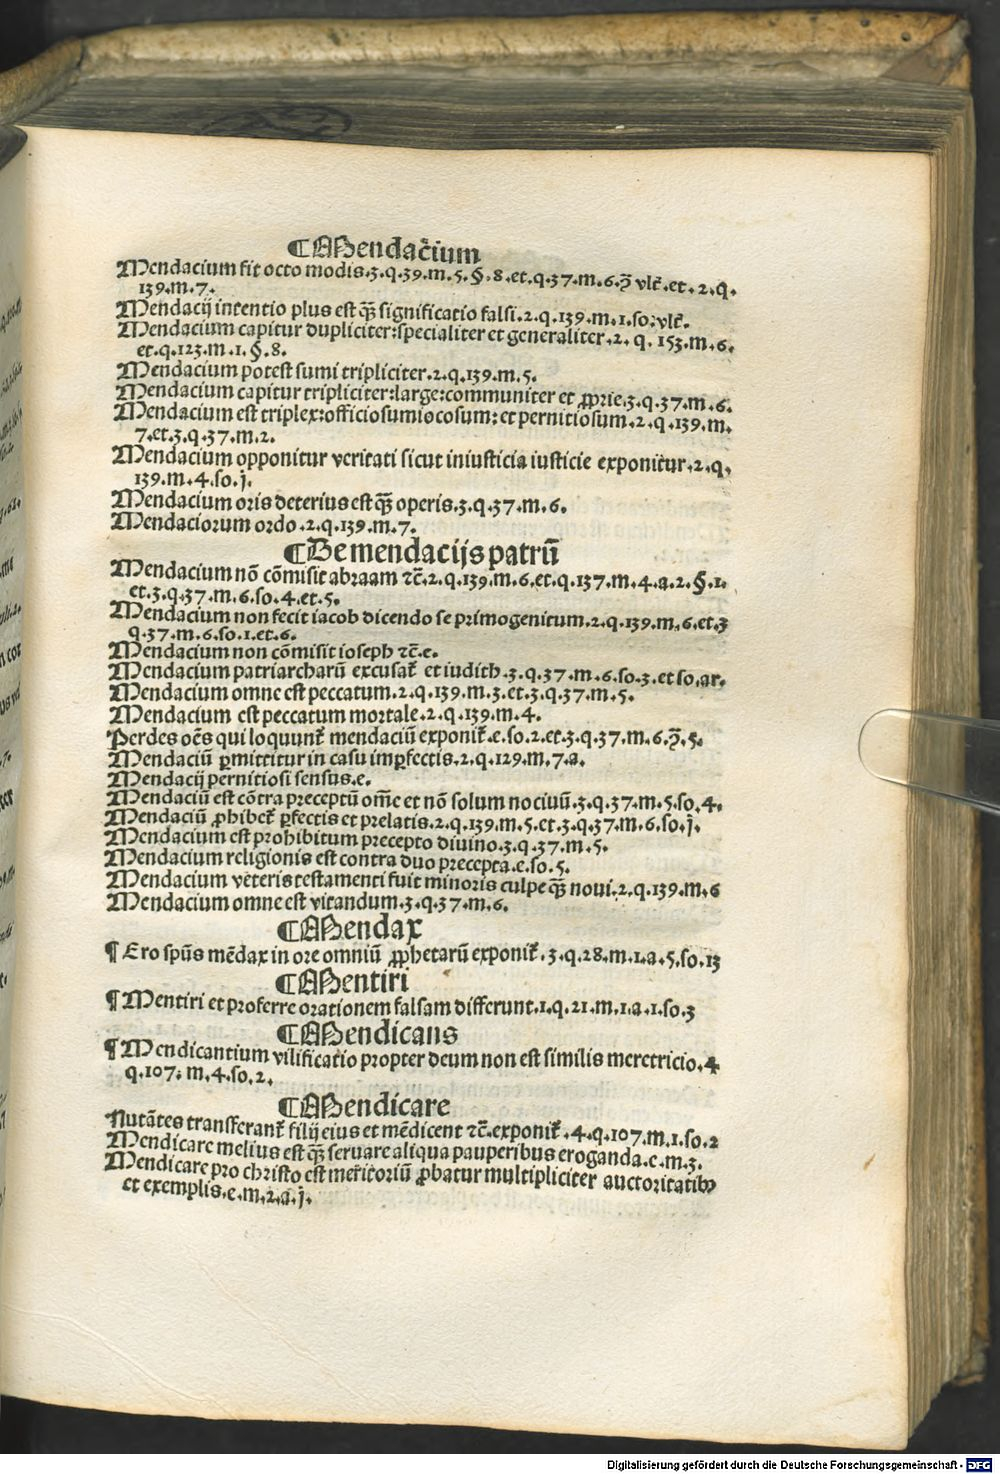 ¶Mendaciū
Mendacium fit octo modis.3.q.39.m.5.§.8.et.q.37.m.6.q̄ vlt̄.et.2.q.
139.m.7.
Mendacij intentio plus est q̄ȝ significatio falsi.2.q.139.m.1.so:vlt̄.
Mendacium capitur dupliciter:specialiter et generaliter.2.q.153.m.6.
et.q.123.m.1.§.8.
Mendacium potest sumi tripliciter.2.q.139.m.5.
Mendacium capitur tripliciter:large:communiter et ꝓprie.3.q.37.m.6.
Mendacium est triplex:officiosumiocosum:et pernitiosum.2.q.139.m.
7.et.3.q.37.m.2.
Mendacium opponitur veritati sicut iniusticia iusticie exponit̄ur.2.q.
139.m.4.so.j.
Mendacium oris deterius est q̄ȝ operis.3.q.37.m.6.
Mendaciorum ordo.2.q.139.m.7.
¶De mendacijs patrū
Mendacium nō cōmisit abraam ⁊c̄.2.q.139.m.6.et.q.137.m.4.a.2.§.1.
et.3.q.37.m.6.so.4.et.5.
Mendacium non fecit iacob dicendo se primogenitum.2.q.139.m.6.et.3
q.37.m.6.so.1.et.6.
Mendacium non cōmisit ioseph ⁊c̄.e.
Mendacium patriarcharū excusat̄ et iudith.3.q.37.m.6.so.3.et so.ar.
Mendacium omne est peccatum.2.q.139.m.3.et.3.q.37.m.5.
Mendacium est peccatum mortale.2.q.139.m.4.
Perdes oēs qui loquunt̄ mendaciū exponit̄.e.so.2.et.3.q.37.m.6.q̄.5.
Mendaciū ꝑmittitur in casu imꝑfectis.2.q.129.m.7.a.
Mendacij pernitiosi sensus.e.
Mendaciū est cōtra preceptū om̄e et nō solum nociuū.3.q.37.m.5.so.4.
Mendaciū ꝓhibet̄ ꝑfectis et prelatis.2.q.139.m.5.et.3.q.37.m.6.so.j.
Mendacium est prohibitum precepto diuino.3.q.37.m.5.
Mendacium religionis est contra duo precepta.e.so.5.
Mendacium veteris testamenti fuit minoris culpe q̄ȝ noui.2.q.139.m.6
Mendacium omne est vitandum.3.q.37.m.6.
¶Mendax
¶ Ero spūs mēdax in ore omniū ꝓphetarū exponit̄.3.q.28.m.1.a.5.so.13
¶Mentiri
¶ Mentiri et proferre orationem falsam differunt.1.q.21.m.1.a.1.so.3
¶Mendicans
¶ Mendicantium vilificatio propter deum non est similis meretricio.4
q.107.m.4.so.2.
¶Mendicare
Nutātes transferant̄ filij eius et mēdicent ⁊c̄.exponit̄.4.q.107.m.1.so.2
Mendicare melius est q̄ȝ seruare aliqua pauperibus eroganda.e.m.3.
Mendicare pro christo est meritoriū ꝓbatur multipliciter auctoritatibꝰ
et exemplis.e.m.2.a.j.
Digitalisierung gefördert durch die Deutsche Forschungsgemeinschaft - DFG